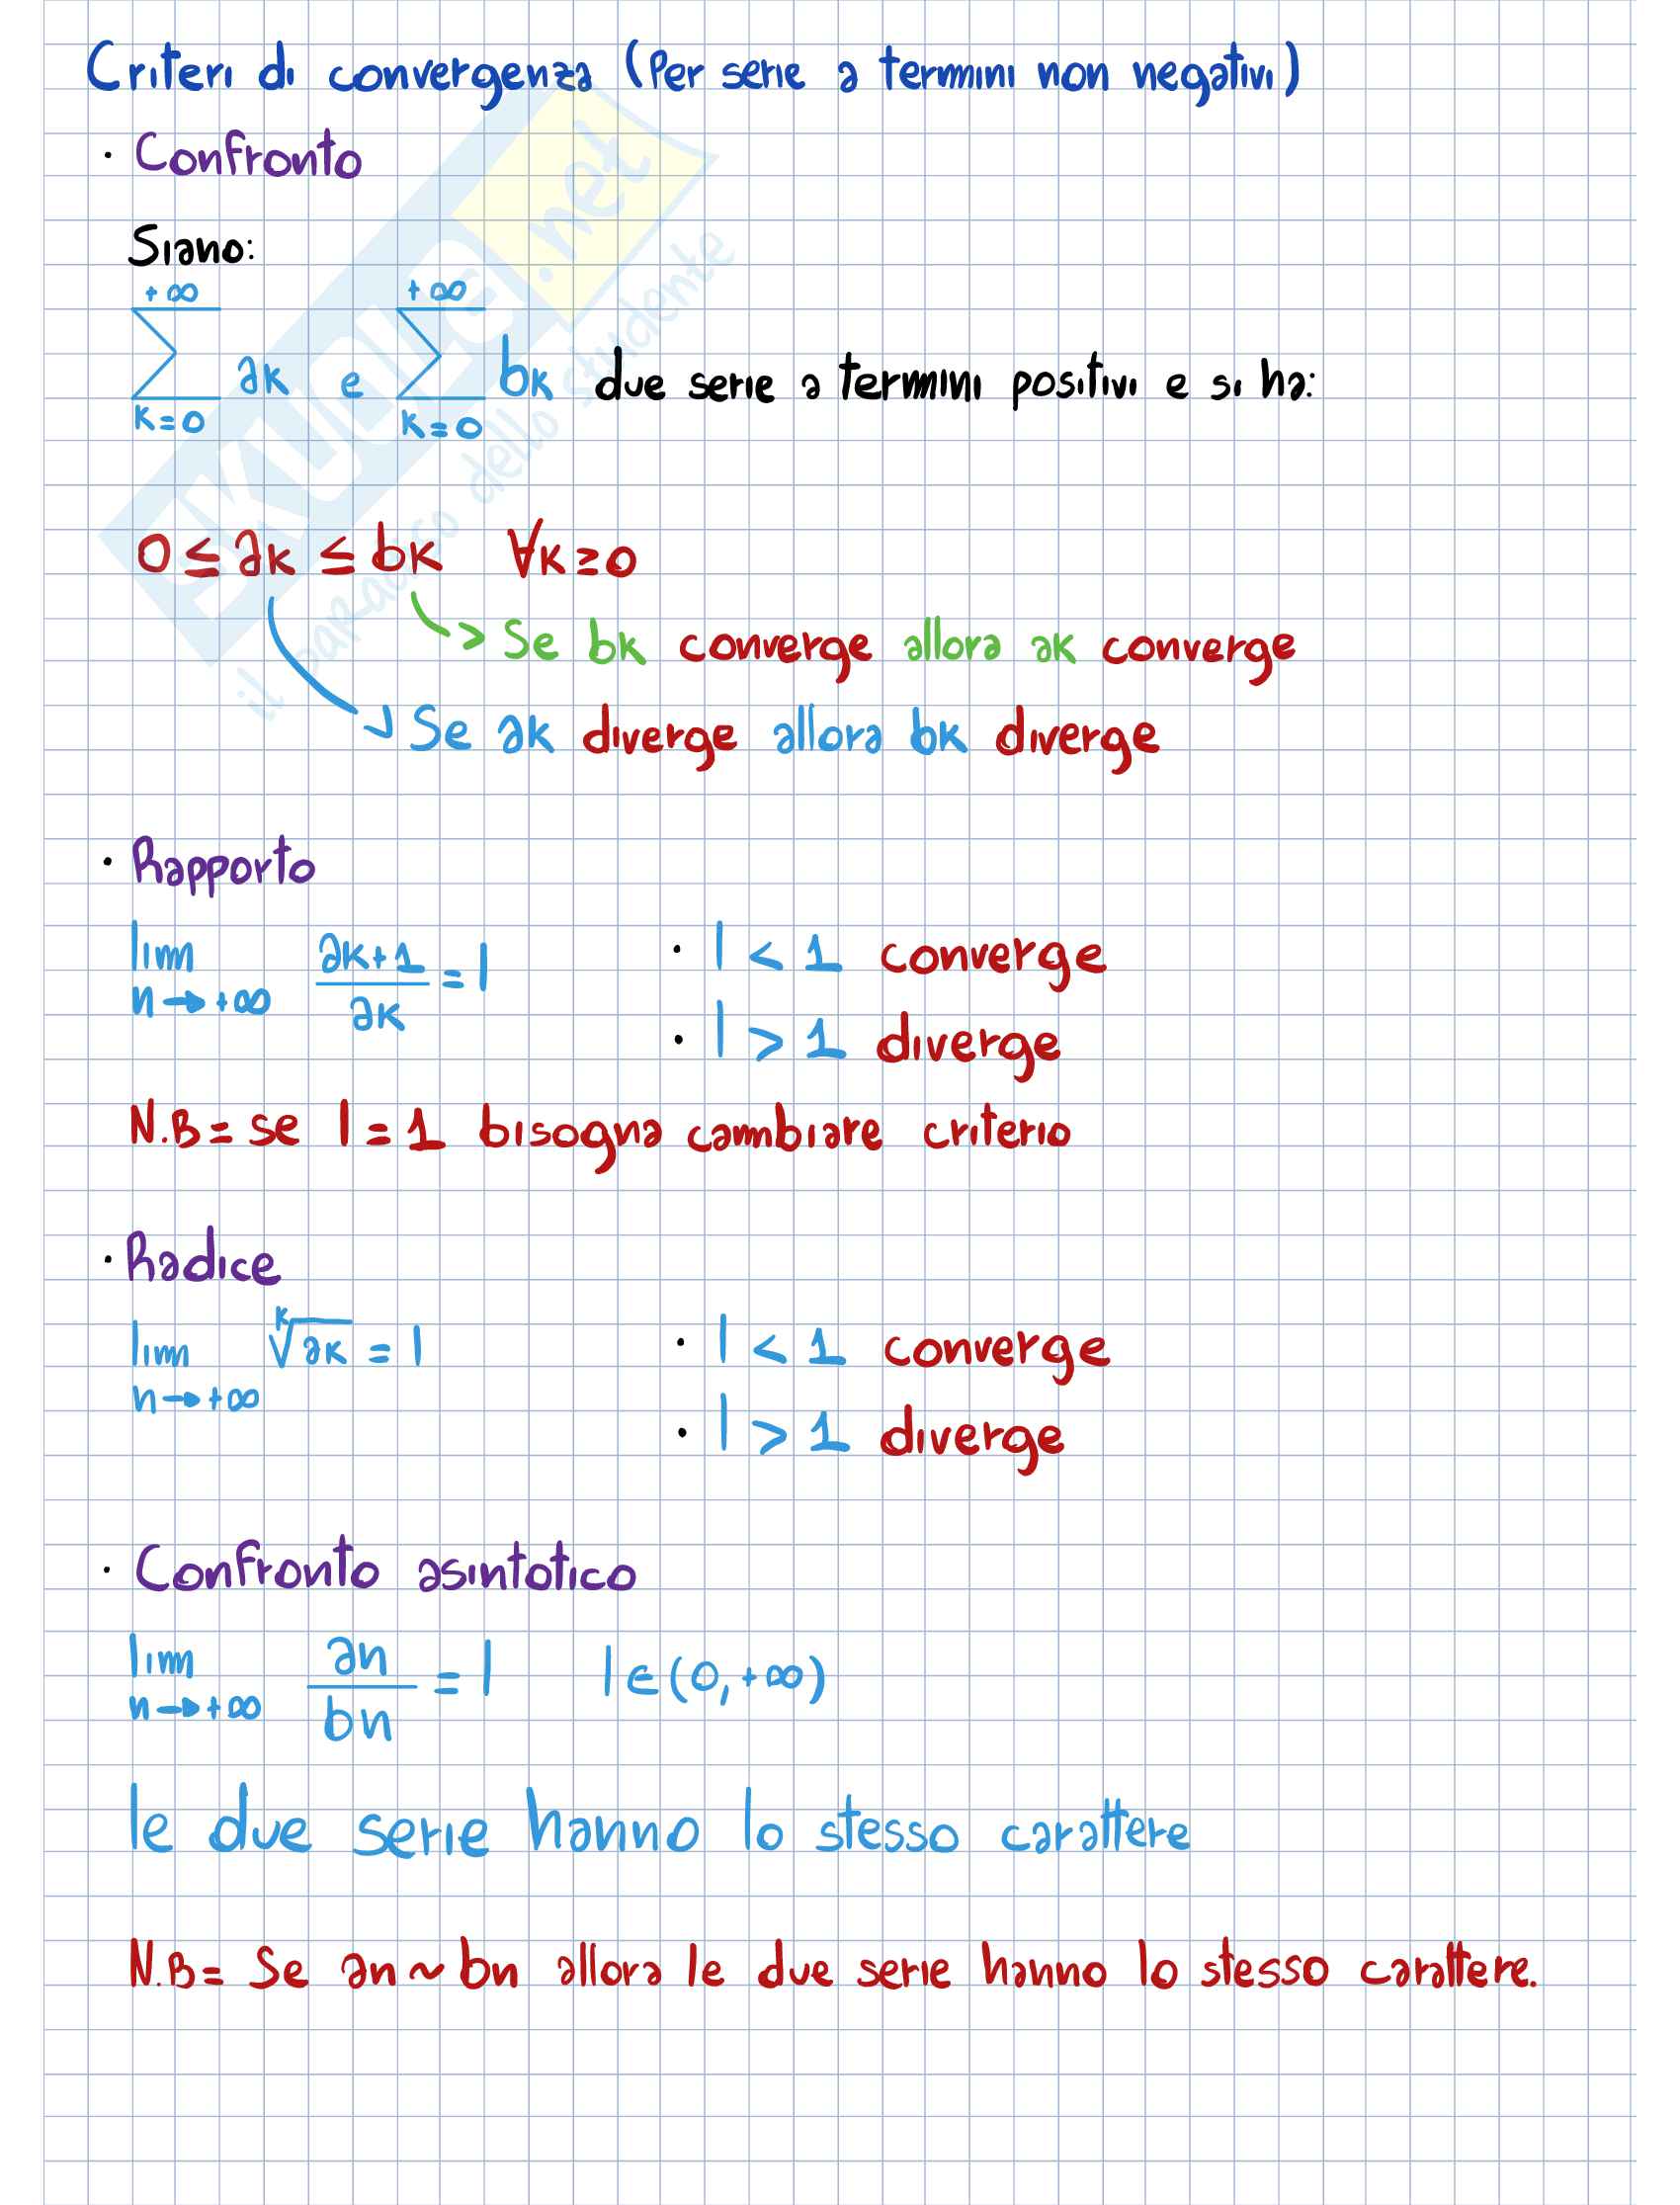 Criteri di convergenza (Per serie a termini non negativi)
· Confronto
Siano:
+∞ +∞
∑ ak e ∑ bk due serie a termini positivi e si ha:
k=0 k=0
0 ≤ ak ≤ bk ∀k≥0
→ Se bk converge allora ak converge
→ Se ak diverge allora bk diverge
· Rapporto
lim n→+∞ ak+1/ak = l
· l < 1 converge
· l > 1 diverge
N.B= se l=1 bisogna cambiare criterio
· Radice
lim n→+∞ ᵏ√ak = l
· l < 1 converge
· l > 1 diverge
· Confronto asintotico
lim n→+∞ an/bn = l l∈(0,+∞)
le due serie hanno lo stesso carattere
N.B= Se an~bn allora le due serie hanno lo stesso carattere.
SKUOLA.net
il paradiso dello studente